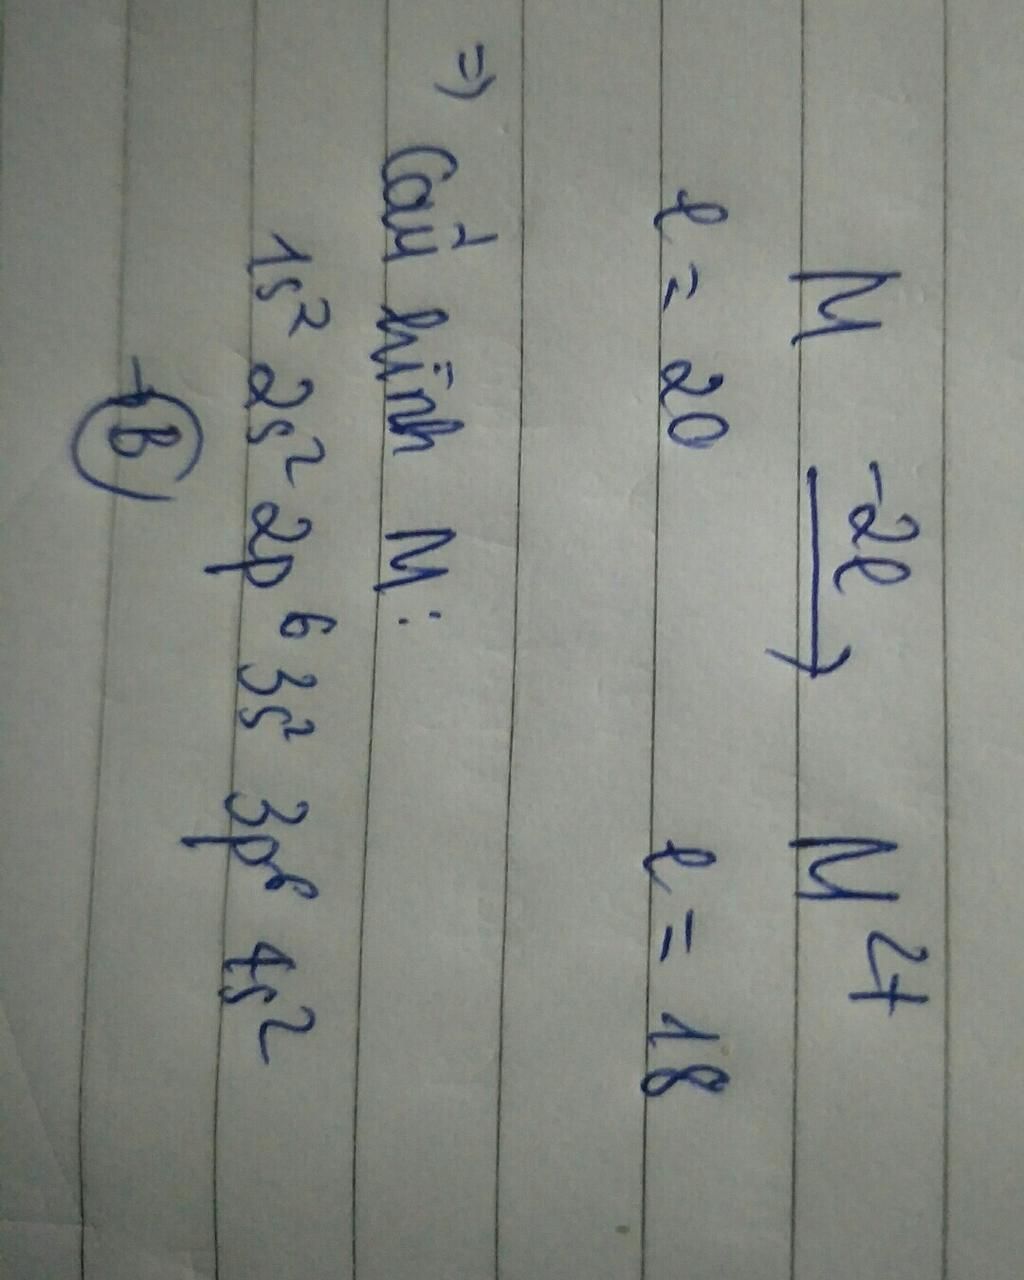 M -2e → M2+
e = 20 e = 18
=> Cấu hình M:
1s² 2s² 2p⁶ 3s² 3p⁶ 4s²
→ B